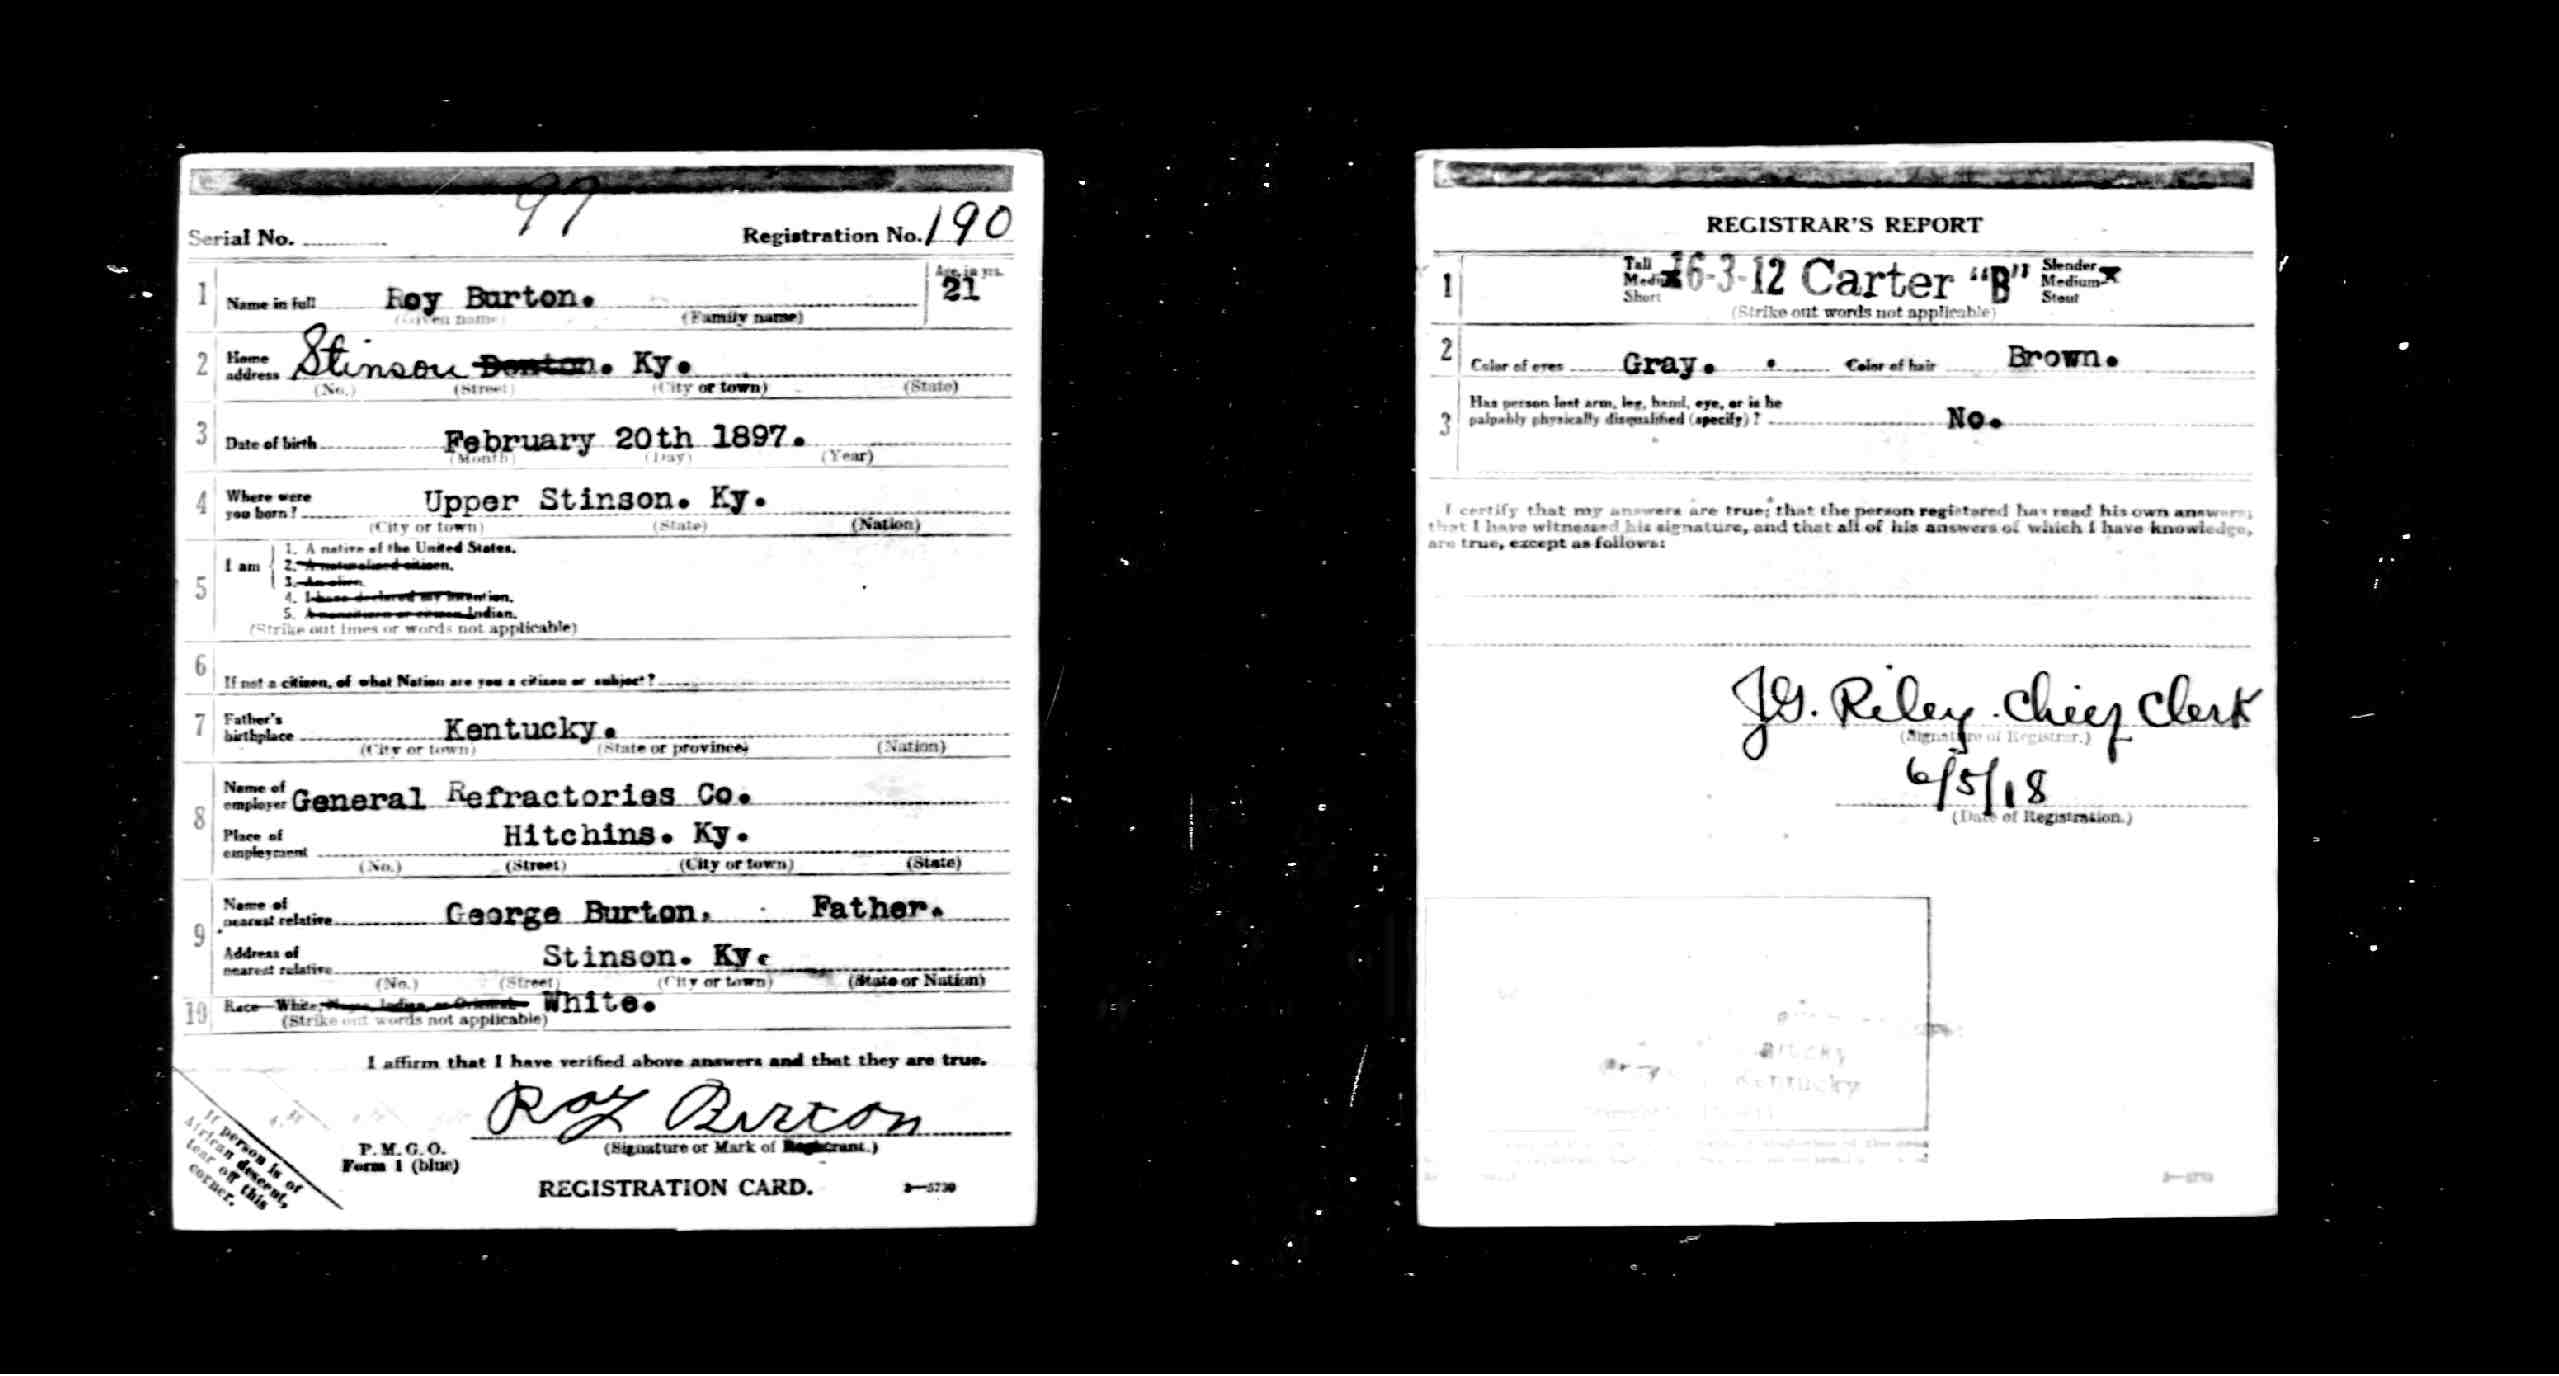 97
Serial No. Registration No. 190
1 Name in full Roy Burton. Age, in yrs. 21
(Given name) (Family name)
2 Home address Stinson Denton. Ky.
(No.) (Street) (City or town) (State)
3 Date of birth February 20th 1897.
(Month) (Day) (Year)
4 Where were you born? Upper Stinson. Ky.
(City or town) (State) (Nation)
5 I am
1. A native of the United States.
2. A naturalized citizen.
3. An alien.
4. I have declared my intention.
5. A noncitizen or citizen Indian.
(Strike out lines or words not applicable)
6 If not a citizen, of what Nation are you a citizen or subject?
7 Father's birthplace Kentucky.
(City or town) (State or province) (Nation)
8 Name of employer General Refractories Co.
Place of employment Hitchins. Ky.
(No.) (Street) (City or town) (State)
9 Name of nearest relative George Burton. Father.
Address of nearest relative Stinson. Ky.
(No.) (Street) (City or town) (State or Nation)
10 Race—White, Negro, Indian, or Oriental. White.
(Strike out words not applicable)
I affirm that I have verified above answers and that they are true.
Roy Burton
(Signature or Mark of Registrant.)
P. M. G. O.
Form 1 (blue)
REGISTRATION CARD. 3—5739
If person is of
African descent,
tear off this
corner.
REGISTRAR'S REPORT
1 Tall Medium Short x 16-3-12 Carter "B" Slender Medium Stout x
(Strike out words not applicable)
2 Color of eyes Gray. Color of hair Brown.
3 Has person lost arm, leg, hand, eye, or is he
palpably physically disqualified (specify)? No.
I certify that my answers are true; that the person registered has read his own answers;
that I have witnessed his signature, and that all of his answers of which I have knowledge,
are true, except as follows:
J.G. Riley - Chief Clerk
(Signature of Registrar.)
6/5/18
(Date of Registration.)
Kentucky